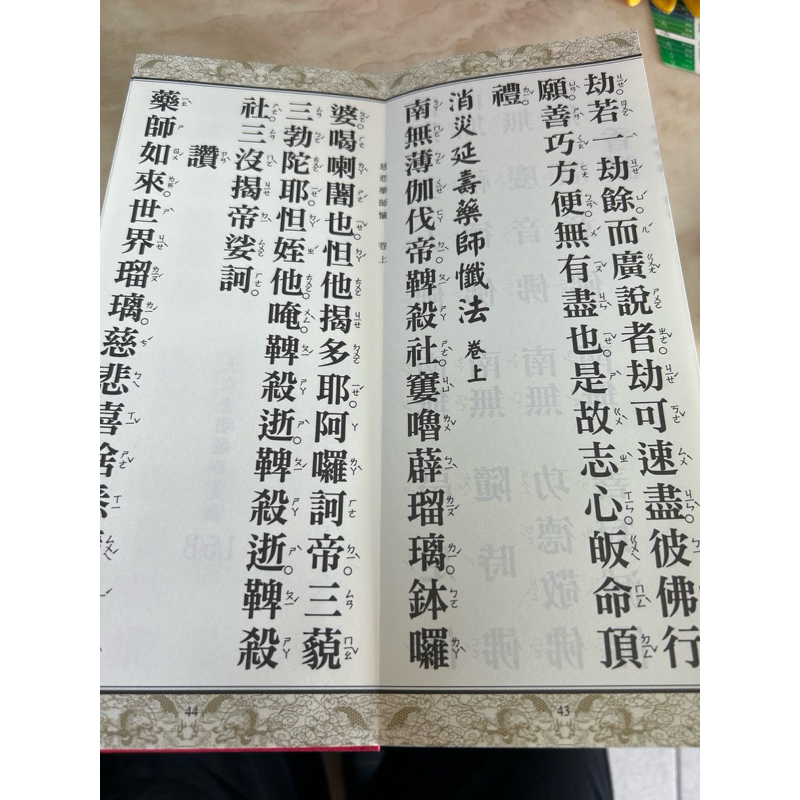 劫若一劫餘而廣說者劫可速盡彼佛行
願善巧方便無有盡也是故志心皈命頂
禮
消災延壽藥師懺法 卷上
南無薄伽伐帝鞞殺社窶嚕薜瑠璃鉢囉
慈悲藥師懺 卷上
43
婆喝喇闍也怛他揭多耶阿囉訶帝三藐
三勃陀耶怛姪他唵鞞殺逝鞞殺逝鞞殺
社三沒揭帝娑訶
讚
藥師如來世界瑠璃慈悲喜捨
44